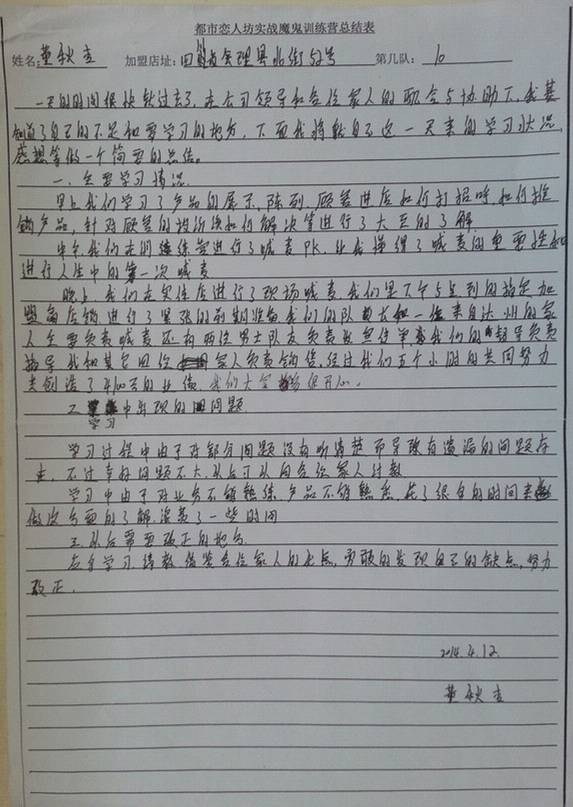 都市恋人坊实战魔鬼训练营总结表
姓名: 董秋吉 加盟店址: 四川省会理县北街52号 第几队: 10
一天的时间很快就过去了,在公司领导和各位家人的配合与协助下,我基
知道了自己的不足和要学习的地方,下面我将就自己这一天来的学习状况,
感想等做一个简要的总结。
一、主要学习情况
早上我们学习了产品的展示,陈列,顾客进店如何打招呼,如何推
销产品,针对顾客的抱怨该如何解决等进行了大至的了解
中午我们在训练营进行了喊麦PK,让我懂得了喊麦的重要性和
进行人生中的第一次喊麦
晚上我们在实体店进行了现场喊麦,我们是下午5点到的指定加
盟店铺进行了紧张的前期准备我们的队长和一位来自达州的家
人主要负责喊麦还有两位男士队友负责发宣传单我们的领导负责
指导我和其它四位家人负责销售,经过我们五个小时的共同努力
共创造了400元的业绩,我们大家都很开心。
二、学习中出现的问题
学习过程中由于对部分问题没有听清楚而导致有遗漏的问题存
在,不过幸好问题不大,以后可以向各位家人请教
学习中由于对业务不够熟练,产品不够熟悉,花了很多的时间来
做次方面的了解,浪费了一些时间
三、以后需要改正的地方
多多学习请教借鉴各位家人的长点,勇敢的发现自己的缺点,努力
改正.
2014.4.12.
董秋吉